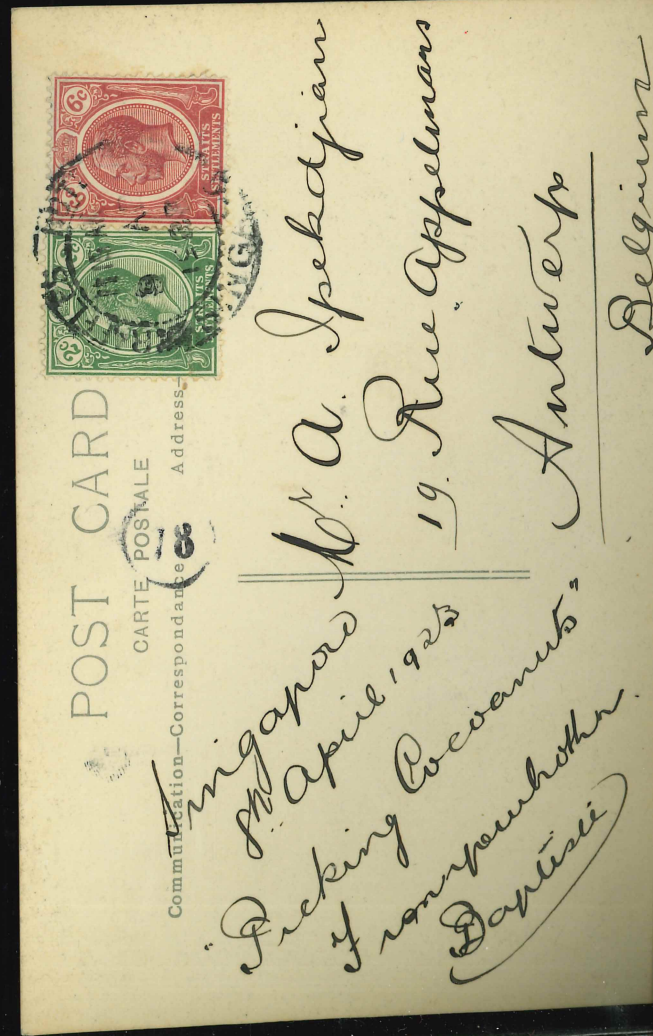 POST CARD
CARTE POSTALE
Communication—Correspondance
Address—
6c
STRAITS
SETTLEMENTS
2c
STRAITS
SETTLEMENTS
18
Singapore
8th April 1923
"Picking Cocoanuts"
From your brother
Baptiste
Mr. A. Ipekdjian
19. Rue Appelmans
Antwerp
Belgium